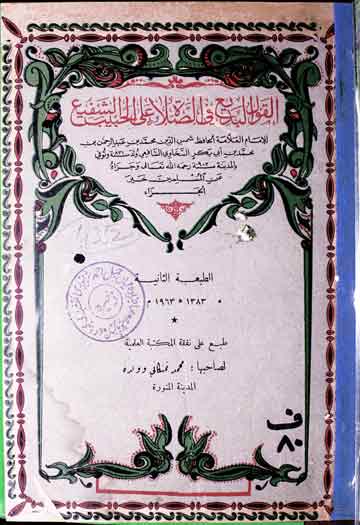 القول البديع في الصلاة على الحبيب الشفيع
للامام العلامة الحافظ شمس الدين محمد بن عبد الرحمن بن
محمد بن أبي بكر السخاوي الشافعي ولد سنة ٨٣١ وتوفي
بالمدينة سنة ٩٠٢ رحمه الله تعالى وجزاه
عن المسلمين خير
الجزاء
الطبعة الثانية
١٣٨٣ * ١٩٦٣ م
*
طبع على نفقة المكتبة العلمية
لصاحبها: محمد نمنكاني وولده
المدينة المنورة